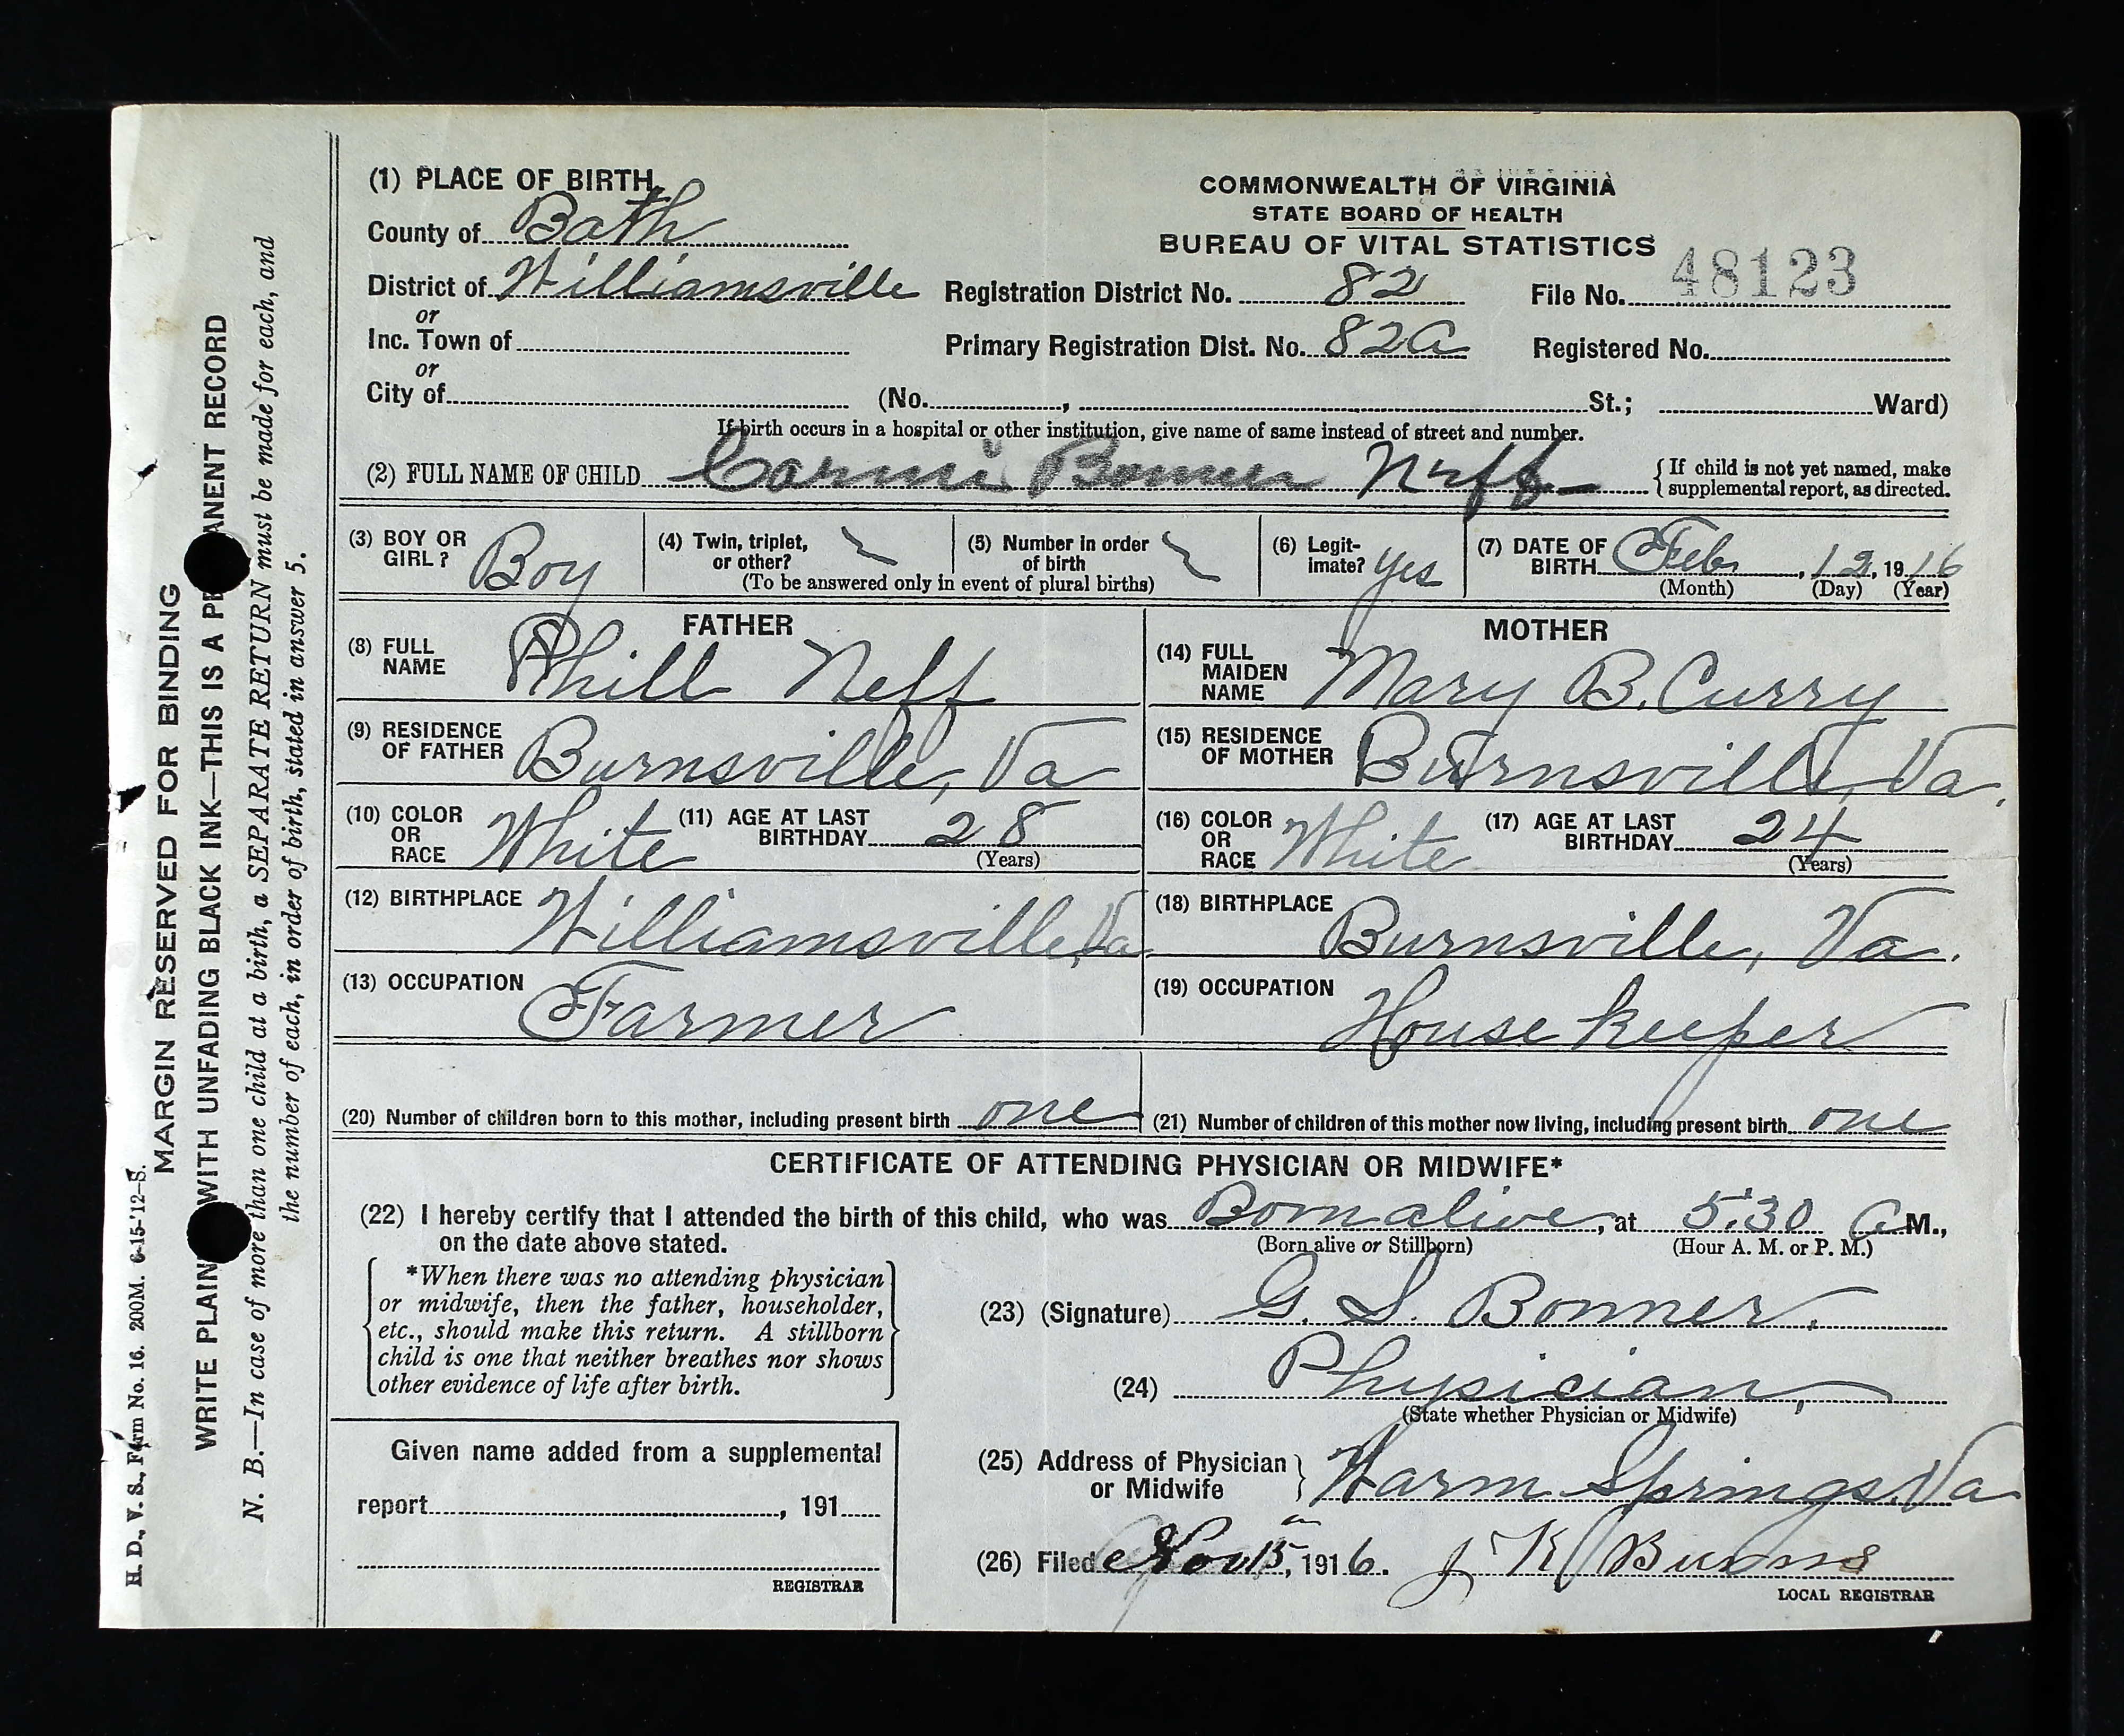 (1) PLACE OF BIRTH
County of Bath
District of Williamsville
or
Inc. Town of
or
City of (No. , St.; Ward)
COMMONWEALTH OF VIRGINIA
STATE BOARD OF HEALTH
BUREAU OF VITAL STATISTICS
Registration District No. 82 File No. 48123
Primary Registration Dist. No. 82A Registered No.
If birth occurs in a hospital or other institution, give name of same instead of street and number.
(2) FULL NAME OF CHILD Carmi Bonner Neff
{ If child is not yet named, make
supplemental report, as directed.
(3) BOY OR GIRL? Boy
(4) Twin, triplet, or other?
(5) Number in order of birth
(To be answered only in event of plural births)
(6) Legitimate? yes
(7) DATE OF BIRTH Feb , 12, 1916
(Month) (Day) (Year)
FATHER
(8) FULL NAME Phill Neff
(9) RESIDENCE OF FATHER Burnsville, Va
(10) COLOR OR RACE White (11) AGE AT LAST BIRTHDAY 28
(Years)
(12) BIRTHPLACE Williamsville, Va
(13) OCCUPATION Farmer
MOTHER
(14) FULL MAIDEN NAME Mary B. Curry
(15) RESIDENCE OF MOTHER Burnsville, Va.
(16) COLOR OR RACE White (17) AGE AT LAST BIRTHDAY 24
(Years)
(18) BIRTHPLACE Burnsville, Va.
(19) OCCUPATION House keeper
(20) Number of children born to this mother, including present birth one
(21) Number of children of this mother now living, including present birth one
CERTIFICATE OF ATTENDING PHYSICIAN OR MIDWIFE*
(22) I hereby certify that I attended the birth of this child, who was Born alive, at 5:30 A M.,
on the date above stated. (Born alive or Stillborn) (Hour A. M. or P. M.)
*When there was no attending physician
or midwife, then the father, householder,
etc., should make this return. A stillborn
child is one that neither breathes nor shows
other evidence of life after birth.
(23) (Signature) G. S. Bonner.
(24) Physician,
(State whether Physician or Midwife)
(25) Address of Physician or Midwife } Warm Springs Va
Given name added from a supplemental
report , 191
REGISTRAR
(26) Filed Nov 15, 1916. J K Burns
LOCAL REGISTRAR
H. D., V. S., Form No. 16. 200M. 6-15-'12-S.
MARGIN RESERVED FOR BINDING
WRITE PLAIN WITH UNFADING BLACK INK—THIS IS A PE ANENT RECORD
N. B.—In case of more than one child at a birth, a SEPARATE RETURN must be made for each, and
the number of each, in order of birth, stated in answer 5.